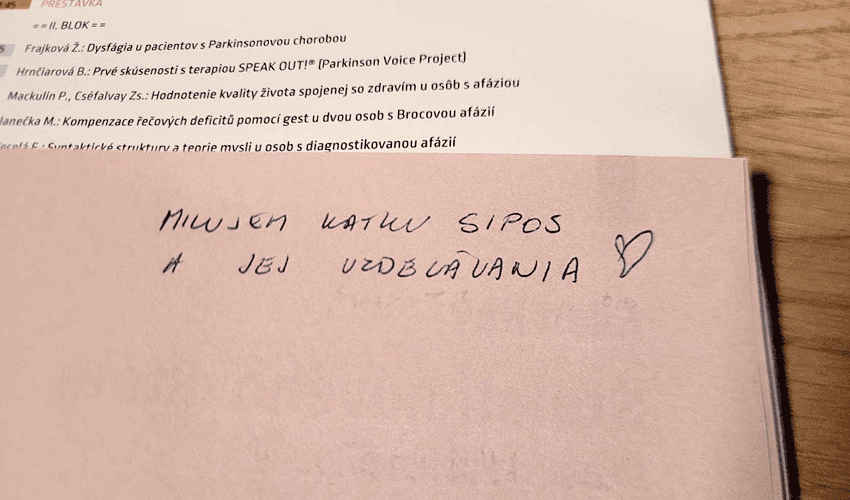 :45 PRESTÁVKA
== II. BLOK ==
Frajková Ž.: Dysfágia u pacientov s Parkinsonovou chorobou
Hrnčiarová B.: Prvé skúsenosti s terapiou SPEAK OUT!® (Parkinson Voice Project)
Mackulin P., Cséfalvay Zs.: Hodnotenie kvality života spojenej so zdravím u osôb s afáziou
Janečka M.: Kompenzace řečových deficitů pomocí gest u dvou osob s Brocovou afázií
F.: Syntaktické struktury a teorie mysli u osob s diagnostikovanou afázií
MILUJEM KATKU SIPOS
A JEJ VZDELÁVANIA